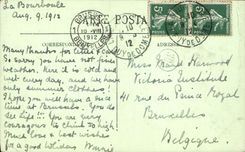 La Bourboule
Aug. 9, 1912
CARTE POSTALE
CORRESPONDANCE
Many thanks for letter & card.
So sorry you have not fine
weather, here it is cold and
wet every day, and we have
only summer clothes!
I hope you will have a nice
time at Brussels. You do
see life!!! You are very
courageous to climb so high
Much love & best wishes
for a good holiday. Marie
Miss Maud Harwood
Victoria Institute
41 rue du Prince Royal
Bruxelles
Belgique